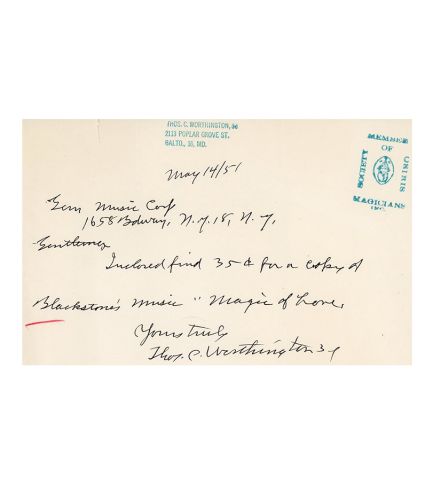 THOS. C. WORTHINGTON, 3d
2113 POPLAR GROVE ST.
BALTO., 16, MD.
MEMBER
OF
OSIRIS
SOCIETY
MAGICIANS
INC.
May 14/51
Gem Music Corp
1658 Bdway, N.Y. 18, N.Y.
Gentlemen
Inclosed find 35¢ for a copy of
Blackstone's music "Magic of Love,
Yours truly
Thos. C. Worthington 3d